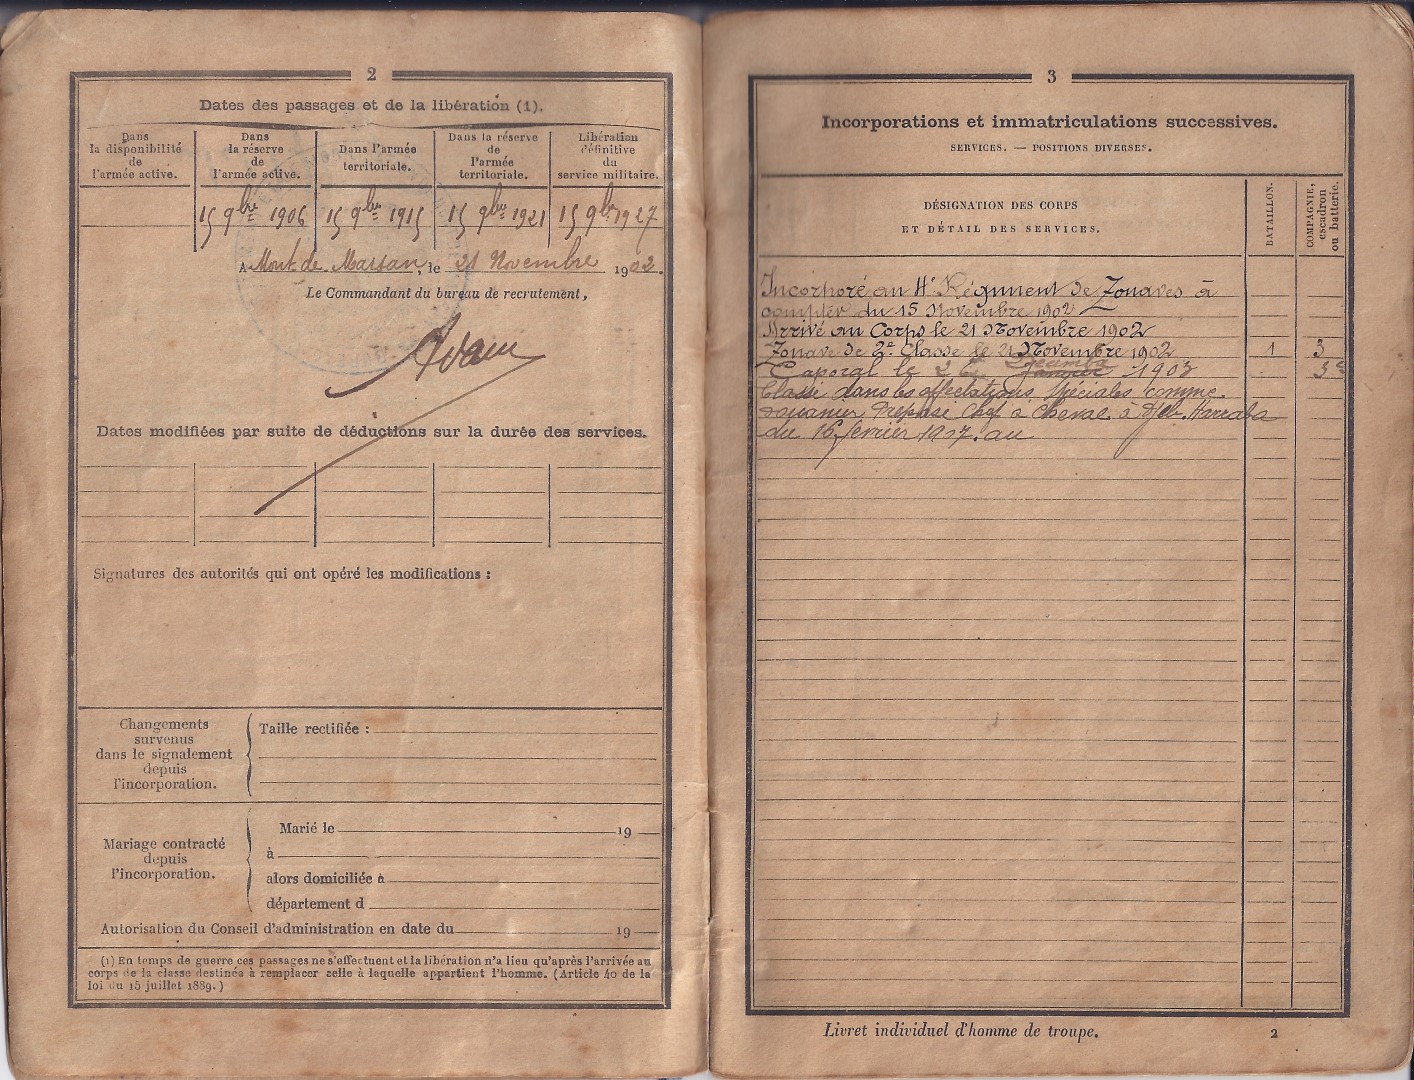 2
Dates des passages et de la libération (1).
Dans
la disponibilité
de
l'armée active.
Dans
la réserve
de
l'armée active.
Dans l'armée
territoriale.
Dans la réserve
de
l'armée
territoriale.
Libération
définitive
du
service militaire.
15 9bre 1906 15 9bre 1915 15 9bre 1921 15 9bre 1927
A Mont de Marsan, le 21 Novembre 1902.
Le Commandant du bureau de recrutement,
Dates modifiées par suite de déductions sur la durée des services.
Signatures des autorités qui ont opéré les modifications :
Changements
survenus
dans le signalement
depuis
l'incorporation.
Taille rectifiée :
Mariage contracté
depuis
l'incorporation.
Marié le 19
à
alors domiciliée à
département d
Autorisation du Conseil d'administration en date du 19
(1) En temps de guerre ces passages ne s'effectuent et la libération n'a lieu qu'après l'arrivée au
corps de la classe destinée à remplacer celle à laquelle appartient l'homme. (Article 40 de la
loi du 15 juillet 1889.)
3
Incorporations et immatriculations successives.
SERVICES. — POSITIONS DIVERSES.
DÉSIGNATION DES CORPS
ET DÉTAIL DES SERVICES.
BATAILLON.
COMPAGNIE,
escadron
ou batterie.
Incorporé au 4e Régiment de Zouaves à
compter du 15 Novembre 1902
Arrivé au Corps le 21 Novembre 1902
Zouave de 2e Classe le 21 Novembre 1902 1 3
Caporal le 1903
Classé dans les affectations spéciales comme
douanier Préposé Chef à Cheval à
du 16 février 1917. au
Livret individuel d'homme de troupe.
2